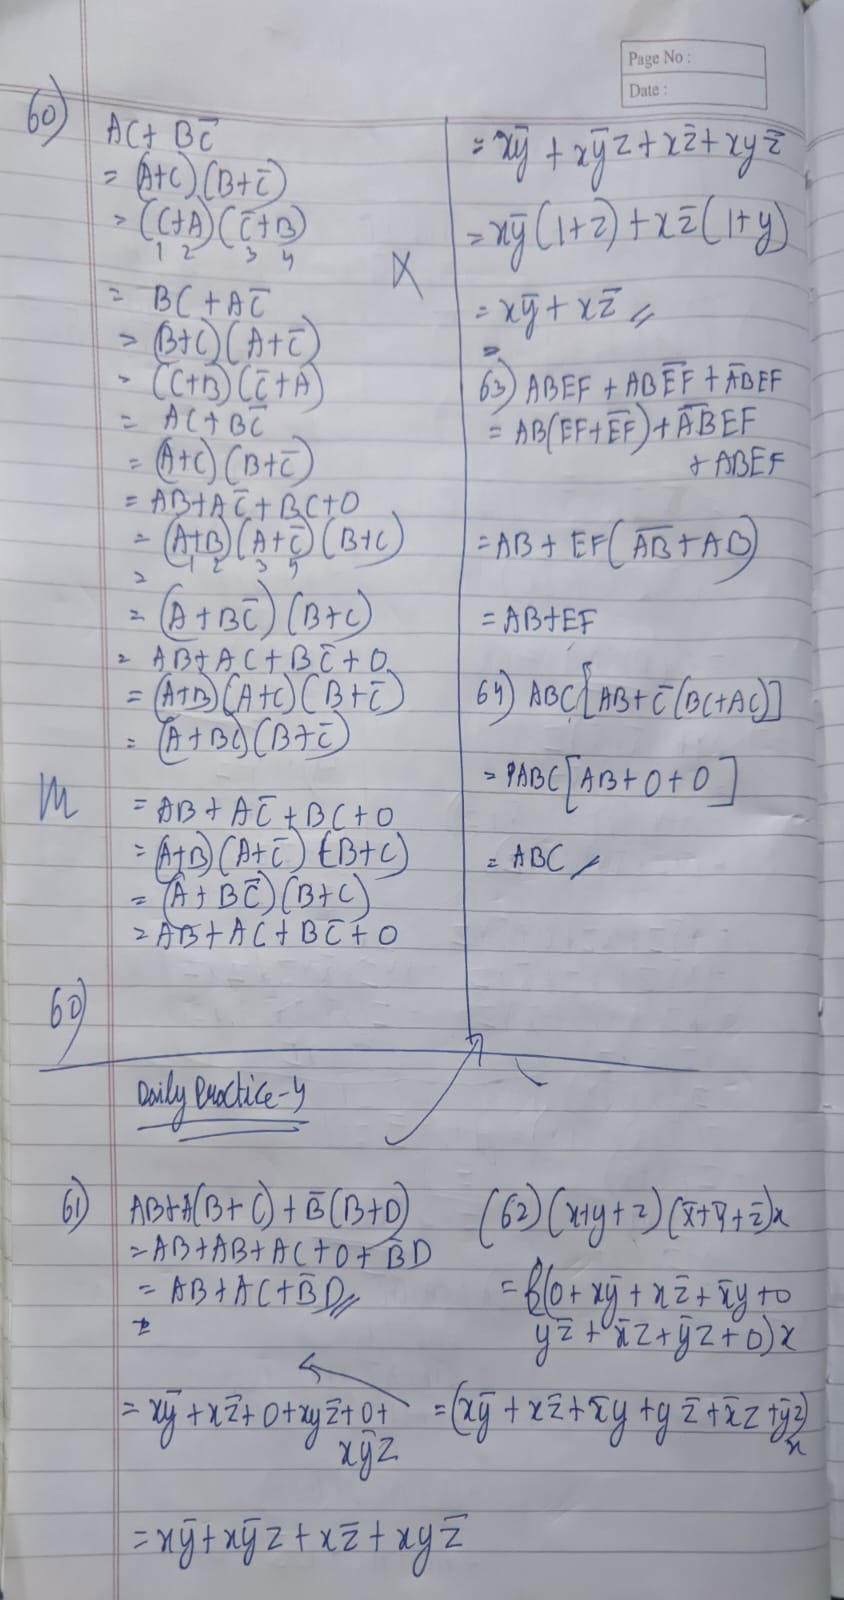 Page No :
Date :
60) AC + BC̅
= (A+C)(B+C̅)
= (C+A)(C̅+B)
1 2 3 4
= BC + AC̅
= (B+C)(A+C̅)
= (C+B)(C̅+A)
= AC + BC̅
= (A+C)(B+C̅)
= AB+AC̅+BC+0
= (A+B)(A+C̅)(B+C)
1 2 3 4
=
= (A+BC̅)(B+C)
= AB+AC+BC̅+0
= (A+B)(A+C)(B+C̅)
= (A+BC)(B+C̅)
= AB+AC̅+BC+0
= (A+B)(A+C̅)(B+C)
= (A+BC̅)(B+C)
= AB+AC+BC̅+0
60)
= xy̅ + xy̅z + xz̅ + xyz̅
= xy̅(1+z) + xz̅(1+y)
= xy̅ + xz̅
=
63) ABEF + ABE̅F̅ + A̅B̅EF
= AB(EF+E̅F̅) + A̅B̅EF
+ ABEF
= AB + EF(A̅B̅+AB)
= AB+EF
64) ABC[AB+C̅(BC+AC)]
= ABC[AB+0+0]
= ABC
Daily Practice-4
61) AB+A(B+C)+B̅(B+D)
= AB+AB+AC+0+B̅D
= AB+AC+B̅D
=
(62) (x+y+z)(x̅+y̅+z̅)x
= (0+xy̅+xz̅+x̅y+0
yz̅+x̅z+y̅z+0)x
= (xy̅+xz̅+x̅y+yz̅+x̅z+y̅z)
x
= xy̅+xz̅+0+xyz̅+0+
xy̅z
= xy̅+xy̅z+xz̅+xyz̅